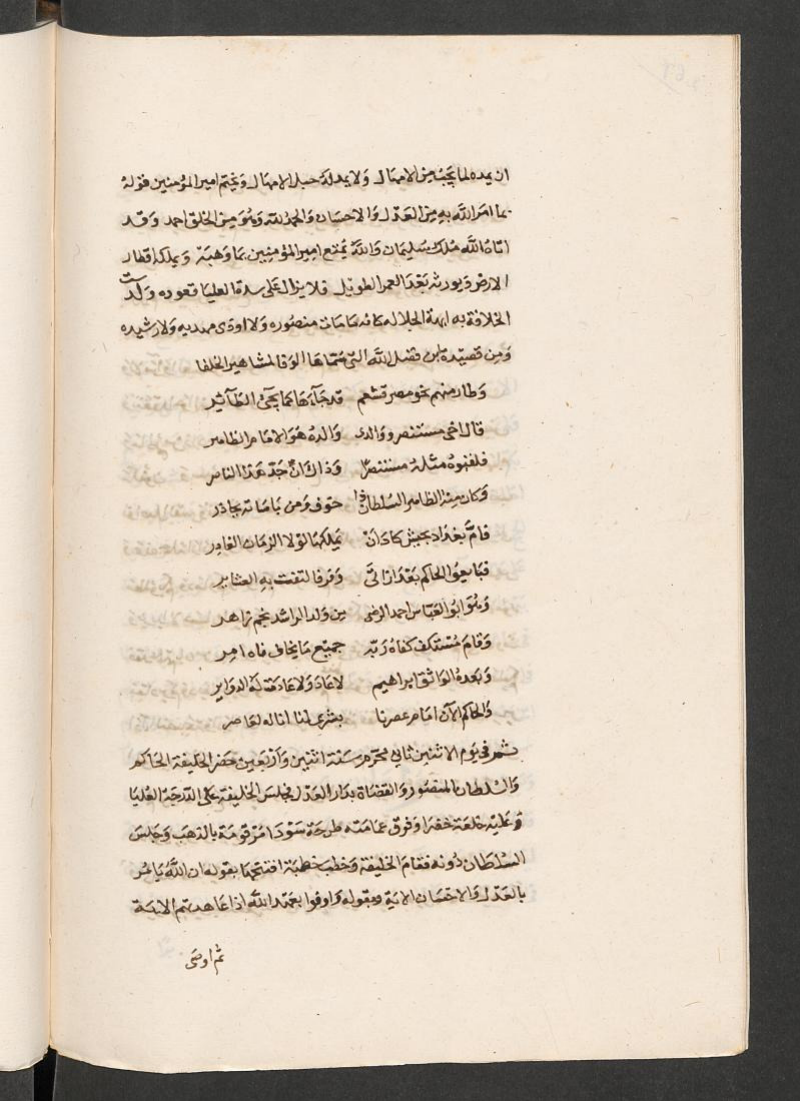 ان يمده لما يجب من الامهال ولا يمد له حبل الامهال ويختم امير المؤمنين قوله
بما امر الله به من العدل والاحسان والحمد لله وهو من الخلق احمد وقد
اتاه الله ملك سليمان والله يمتع امير المؤمنين بما وهبه ويملكه اقطار
الارض ويورثه بعد العمر الطويل فلا يزال على سدة العليا قعوده ولدست
الخلافة به ابهة الجلاله كانه ما مات منصوره ولا اودى مهديه ولا رشيده
ومن قصيدة ابن فضل الله التي سماها الوفا لمشاهير الخلفا
وطار منهم نحو مصر قشعم قد جآءها كما يجئ الطآئير
قال اخي مستنصر ووالدى والده هو الامام الظاهر
فلقبوه مثله مستنصرٌ وذاك كان جد هذا الناس
وكان منه الظاهر السلطان ذا خوف ومن باساته يحاذر
فام بغداد بجيش كاد ان يملكها لولا الزمان الغادر
فبايعوا الحاكم بعد اذ اتى وفرقا التفت به العشاير
وهو ابو العباس احمد الرضى من ولد الراشد نجم زاهر
وقام مستكف كفاه ربه جميع ما يخاف فاه امر
وبعده الواثق ابراهيم لا عاد ولا عادت له الدواير
والحاكم الآن امام عصرنا بشرى لنا اناله نعاصر
ثم في يوم الاثنين ثاني محرم سنة اثنين واربعين حضر الخليفة الحاكم
والسلطان المنصور والقضاة بدار العدل فجلس الخليفة على الدرجة العليا
وعليه خلعة خضرا وفوق عمامته طرحة سودا مرقومة بالذهب وجلس
السلطان دونه فقام الخليفة وخطب خطبة افتتحها بقوله ان الله يامر
بالعدل والاحسان الاية وبقوله واوفوا بعهد الله اذا عاهدتم الاية
ثم اوصى